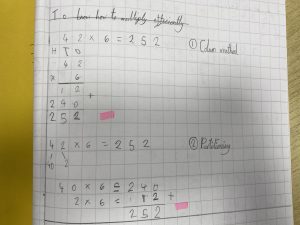 T.O. know how to multiply efficiently
1 42 × 6 = 252 ① Colum method
H T O
4 2
× 6
1 2
2 4 0 +
2 5 2
42 × 6 = 252 ② Partitioning
40 2
40 × 6 = 240
2 × 6 = 12 +
252